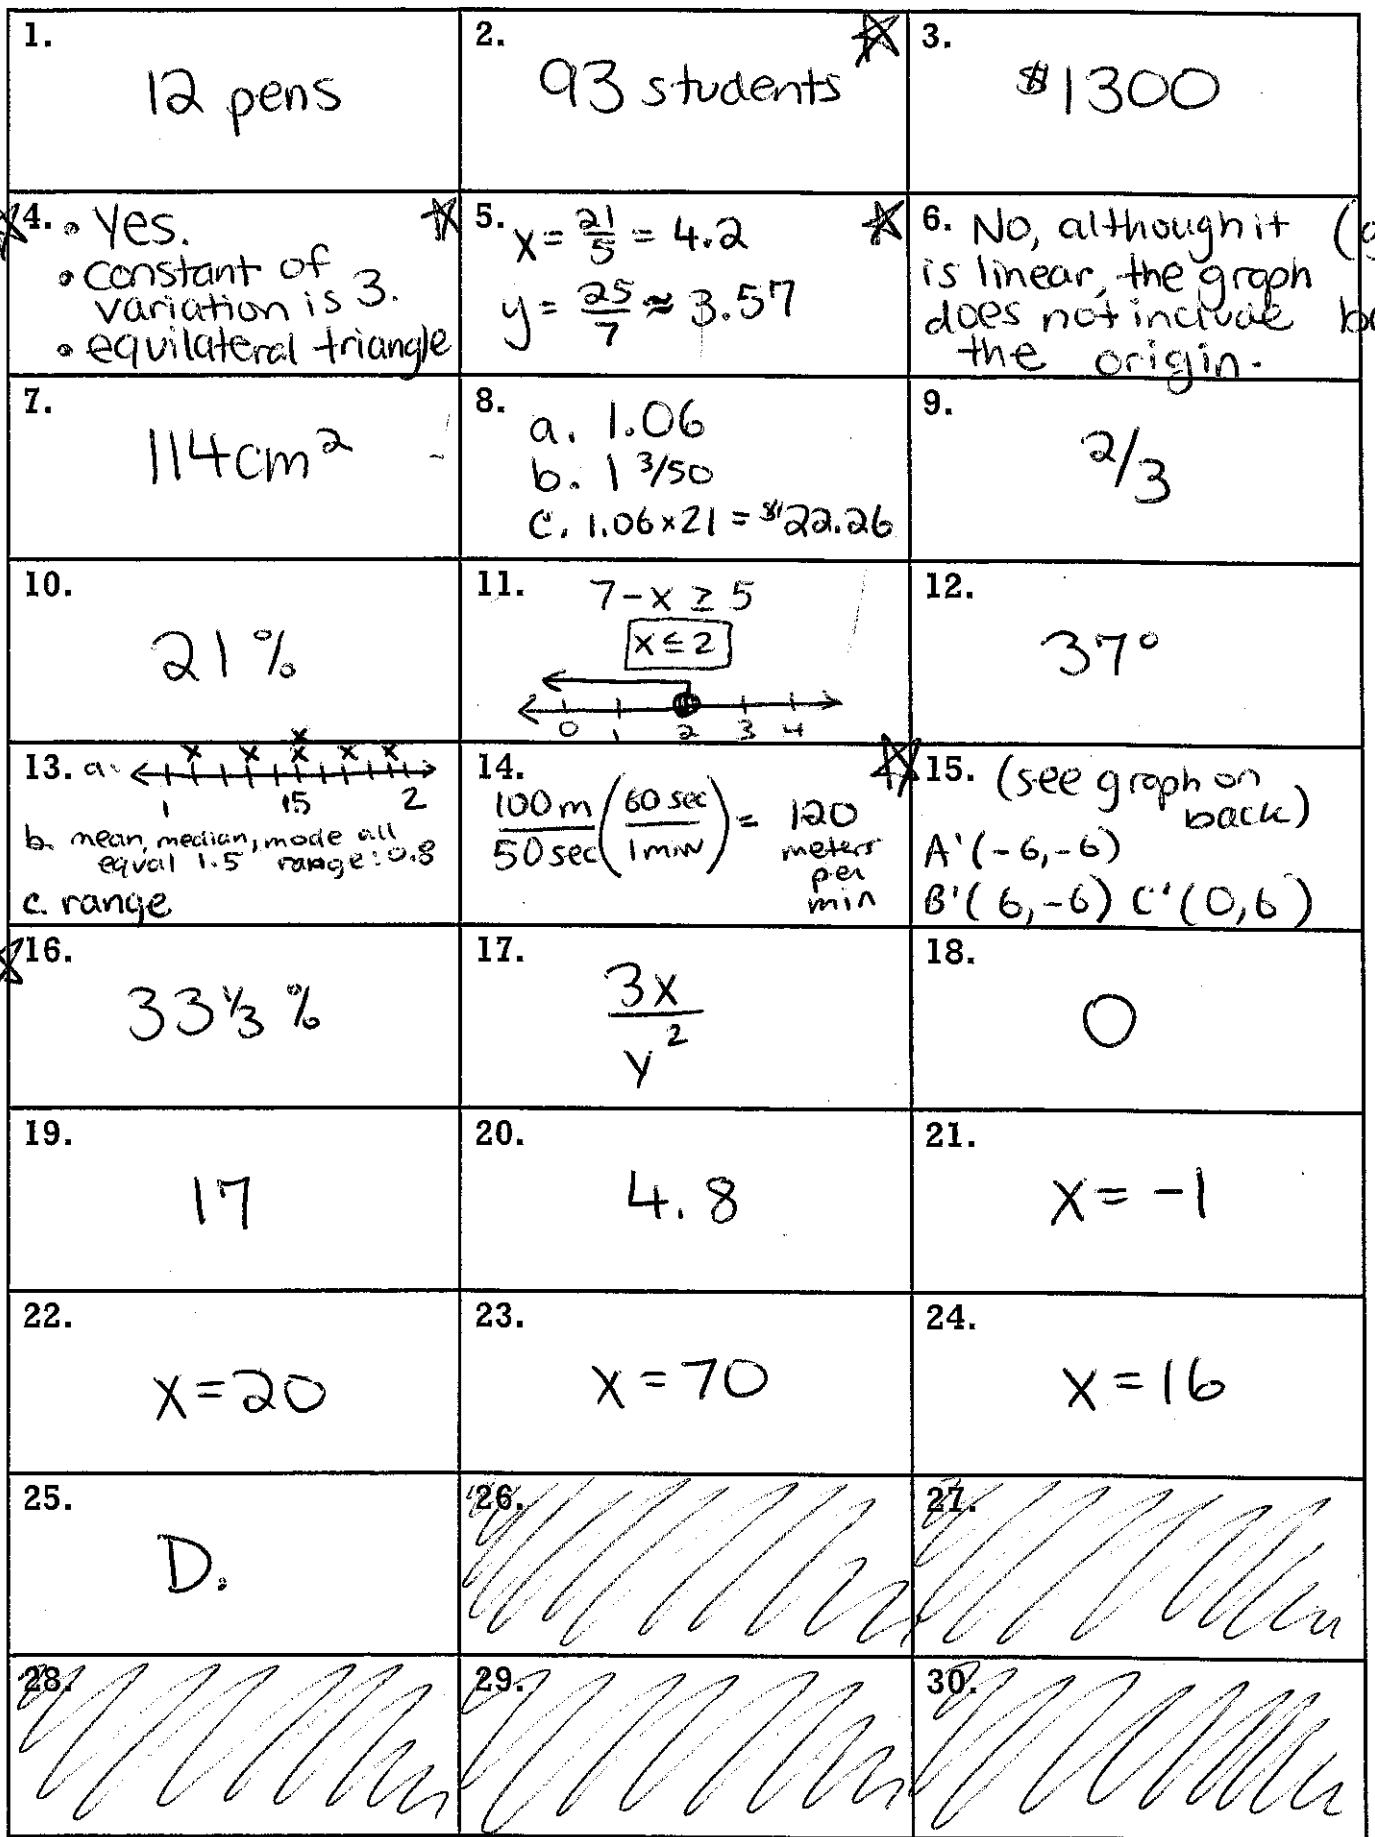 1.
12 pens
2.
93 students
3.
$1300
4. • Yes.
• constant of
variation is 3.
• equilateral triangle
5. x = 21/5 = 4.2
y = 25/7 ≈ 3.57
6. No, although it (
is linear, the graph
does not include
the origin.
7.
114cm²
8. a. 1.06
b. 1 3/50
c. 1.06×21 = $22.26
9.
2/3
10.
21%
11. 7-x ≥ 5
x ≤ 2
0 1 2 3 4
12.
37°
13. a. x x x x x x
1 15 2
b. mean, median, mode all
equal 1.5 range: 0.8
c. range
14.
100m/50sec (60 sec/1min) = 120
meters
per
min
15. (see graph on
back)
A'(-6,-6)
B'(6,-6) C'(0,6)
16.
33 1/3 %
17.
3x/y²
18.
0
19.
17
20.
4.8
21.
x = -1
22.
x = 20
23.
x = 70
24.
x = 16
25.
D.
26.
27.
28.
29.
30.